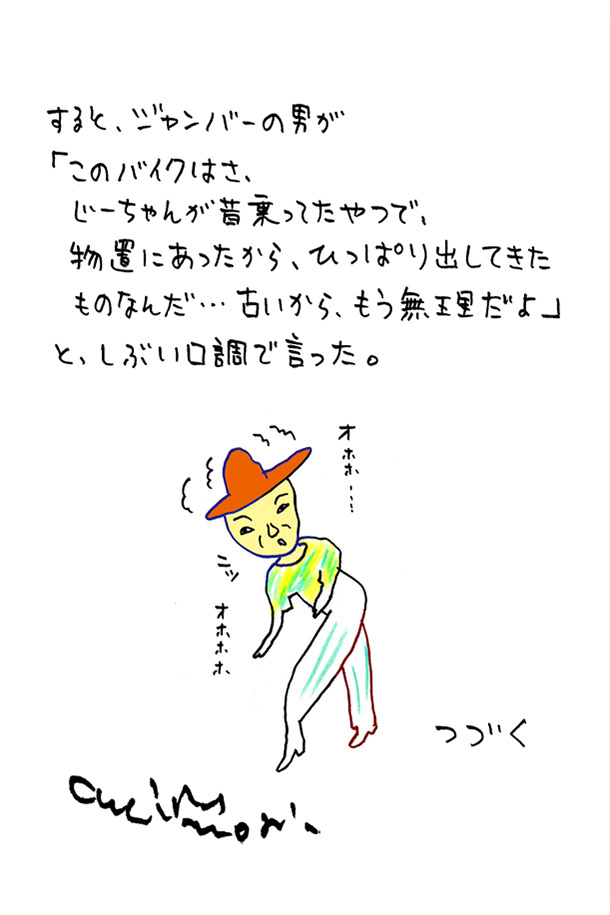 すると、ジャンバーの男が
「このバイクはさ、
じーちゃんが昔乗ってたやつで、
物置にあったから、ひっぱり出してきた
ものなんだ…古いから、もう無理だよ」
と、しぶい口調で言った。
オホホ…
ニッ
オホホホ、
つづく